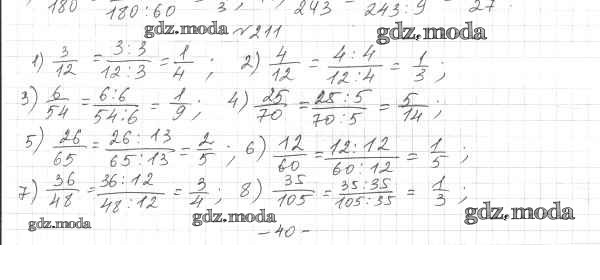 180 180:60 3; 243 243:9 27
gdz.moda №211 gdz.moda
1) 3/12 = 3:3/12:3 = 1/4; 2) 4/12 = 4:4/12:4 = 1/3;
3) 6/54 = 6:6/54:6 = 1/9; 4) 25/70 = 25:5/70:5 = 5/14;
5) 26/65 = 26:13/65:13 = 2/5; 6) 12/60 = 12:12/60:12 = 1/5;
7) 36/48 = 36:12/48:12 = 3/4; 8) 35/105 = 35:35/105:35 = 1/3;
gdz.moda gdz.moda gdz.moda
-40-